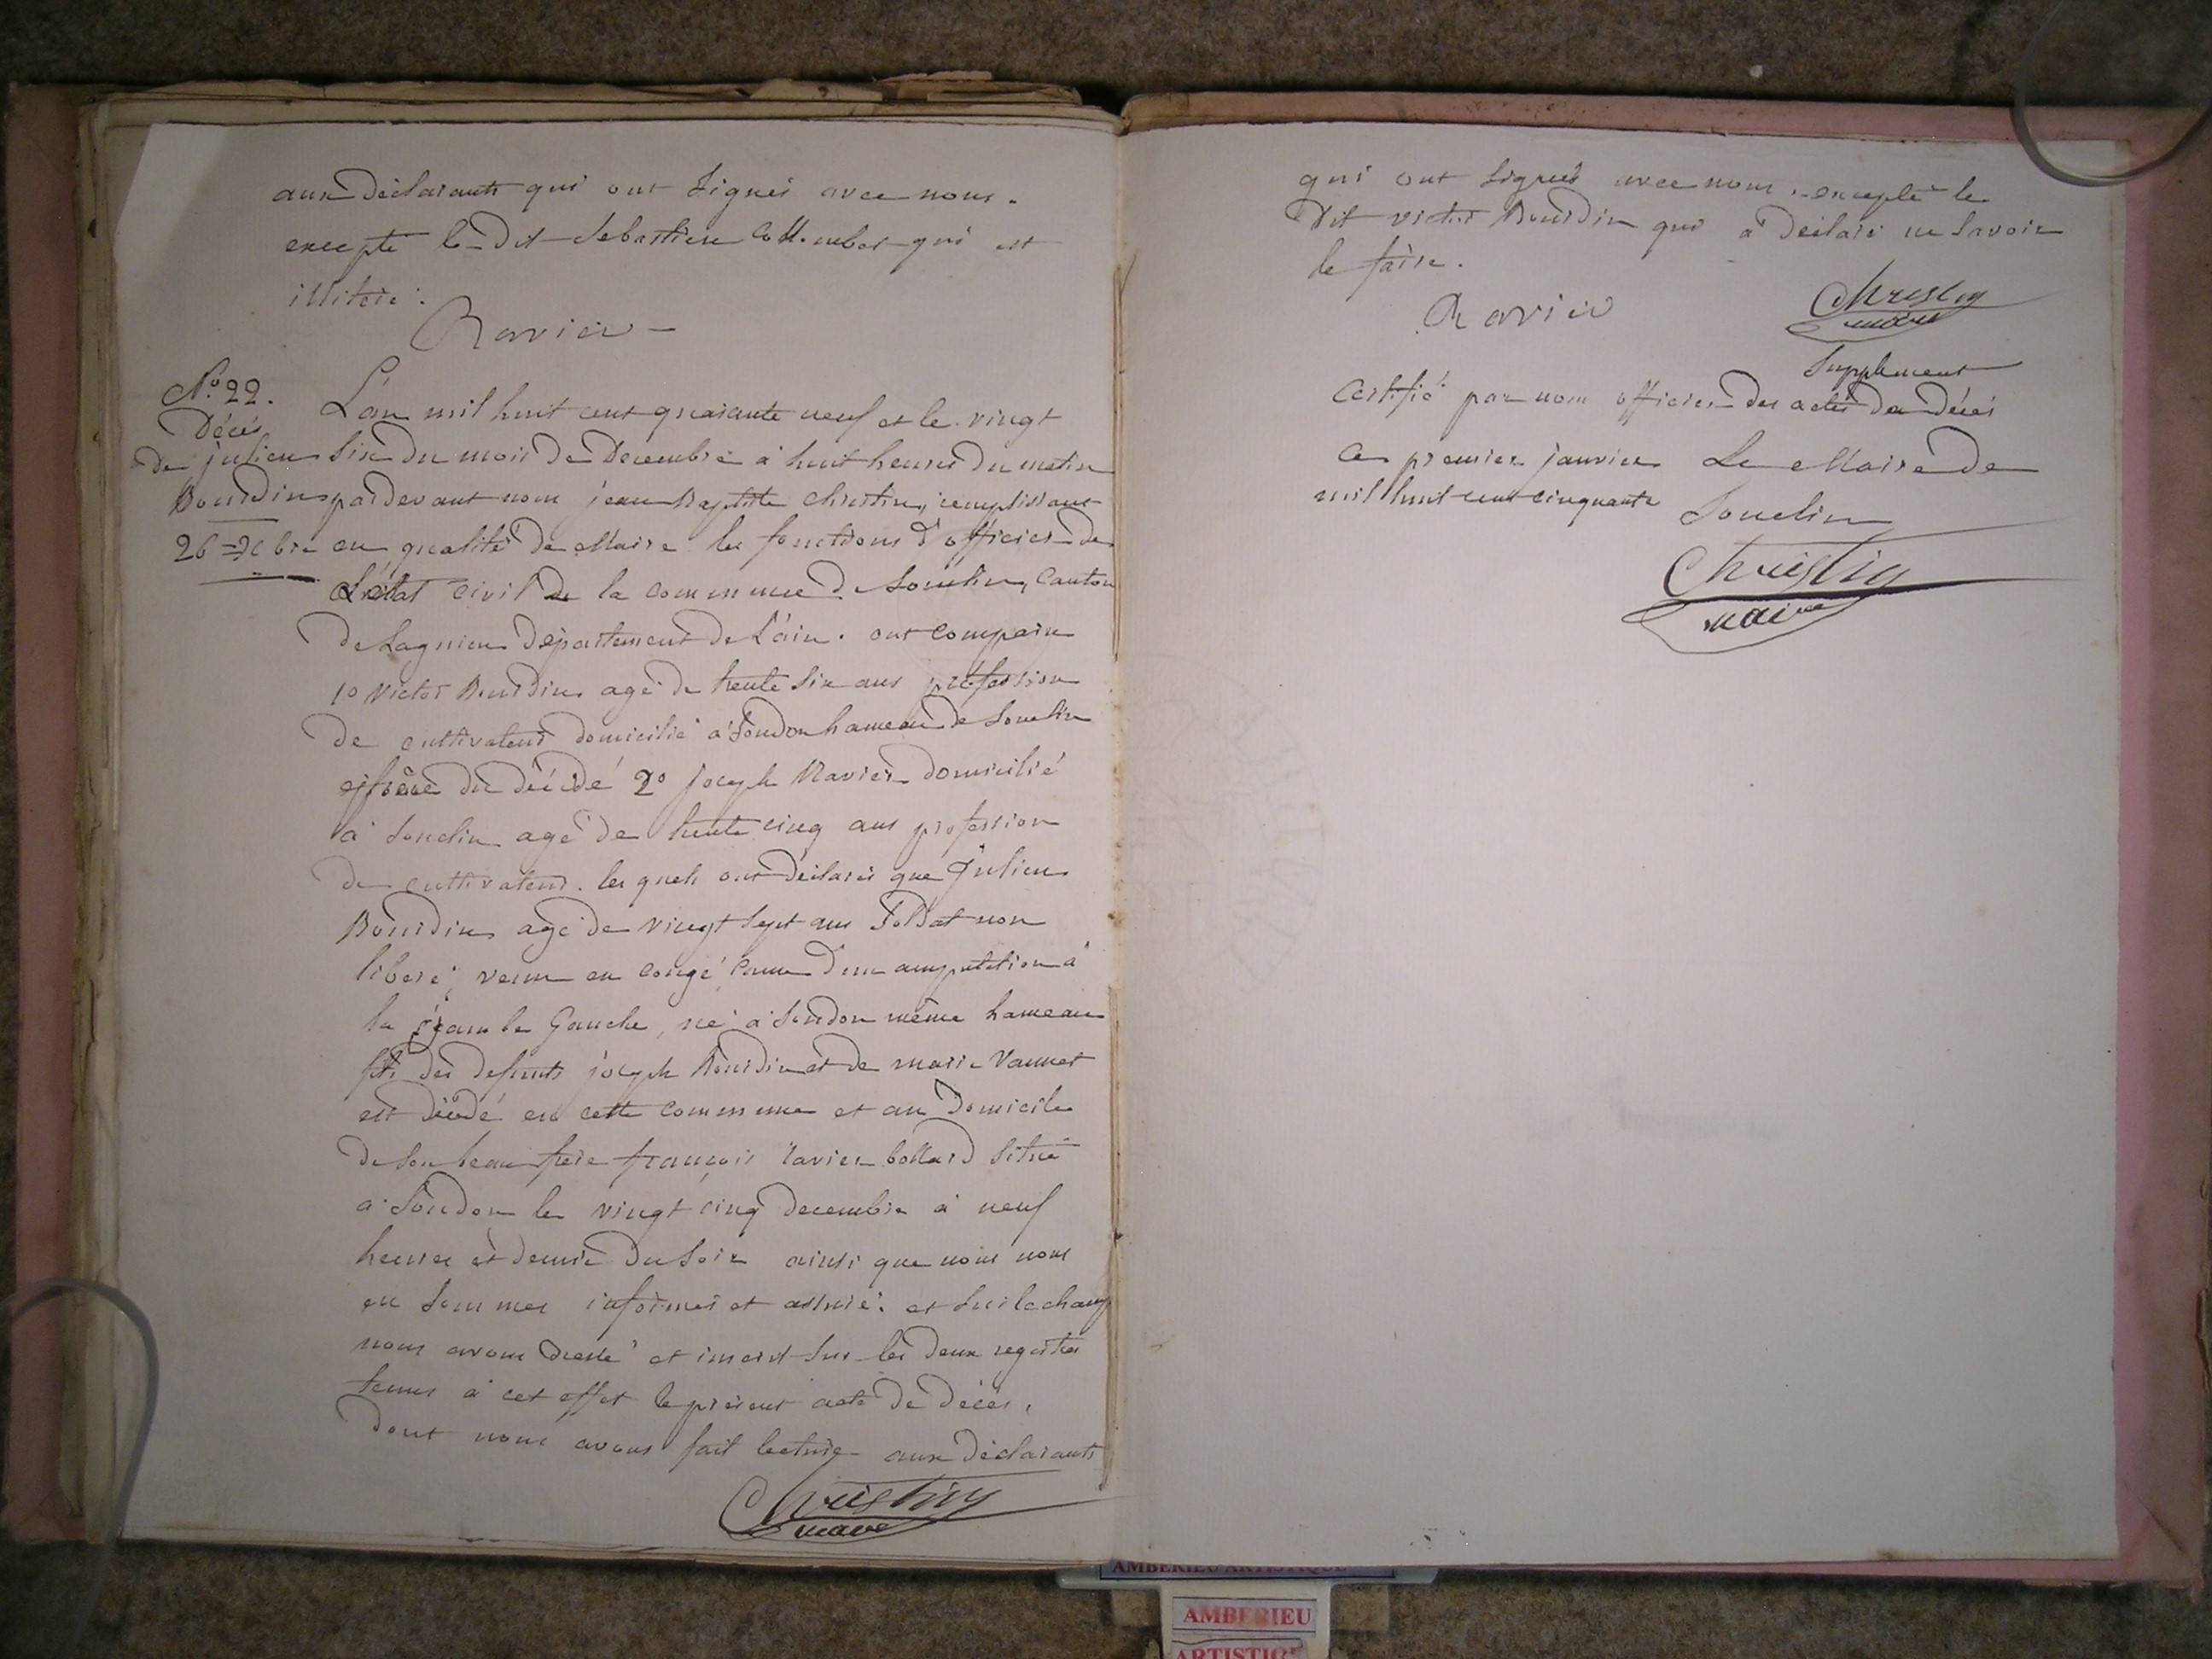 aux Déclarants qui ont Signés avec nous.
excepté le Dit Sebastien Collombet qui est
illiteré.
Ravier
N.o 22.
Décés
de julien
Bourdin
26 = Xbre
L'an mil huit cent quarante neuf et le vingt
Six Du mois De Decembre à huit heures Du matin
pardevant nous jean Baptiste Christin, remplissant
en qualité De Maire les fonctions D'officier De
L'état civil De la commune De Souclin, Canton
De Lagnieu Département De L'ain. ont comparu
1o Victor Bourdin agé De trente Six ans profession
De cultivateur Domicilié à Soudon hameau De Souclin
frère Du Décédé 2o joseph Ravier Domicilié
à Souclin agé De trente cinq ans profession
De cultivateur. les quels ont Déclarés que Julien
Bourdin agé De vingt Sept ans Soldat non
liberé, venu en congé, cause D'une amputation à
la jambe Gauche, né à Soudon même hameau
fils des defunts joseph Bourdin et De marie Vannet
est Décédé en cette commune et au Domicile
De Son beau frère françois Xavier Collard Situé
à Soudon le vingt cinq Decembre à neuf
heures et demie Du Soir ainsi que nous nous
en Sommes informés et assuré. et Sur le champ
nous avons Dressé et inscrit Sur les Deux registres
tenus à cet effet le présent acte De Décés.
Dont nous avons fait lecture aux Déclarants
Christin
maire
qui ont Signés avec nous, excepté le
Dit victor Bourdin qui a Déclaré ne Savoir
le faire.
Ravier
Christin
maire
Supplement
Certifié par nous officier Des actes De Décés
Ce premier janvier
mil huit cent cinquante
Le Maire De
Souclin
Christin
maire
AMBERIEU ARTISTIQUE
AMBERIEU
ARTISTIQUE